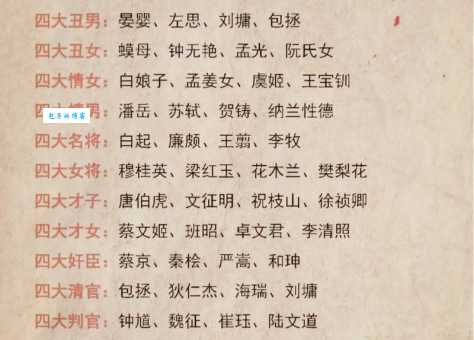 四大丑男：晏婴、左思、刘墉、包拯
四大丑女：蟆母、钟无艳、孟光、阮氏女
四大情女：白娘子、孟姜女、虞姬、王宝钏
四大情男：潘岳、苏轼、贺铸、纳兰性德
四大名将：白起、廉颇、王翦、李牧
四大女将：穆桂英、梁红玉、花木兰、樊梨花
四大才子：唐伯虎、文征明、祝枝山、徐祯卿
四大才女：蔡文姬、班昭、卓文君、李清照
四大奸臣：蔡京、秦桧、严嵩、和珅
四大清官：包拯、狄仁杰、海瑞、刘墉
四大判官：钟馗、魏征、崔珏、陆文道